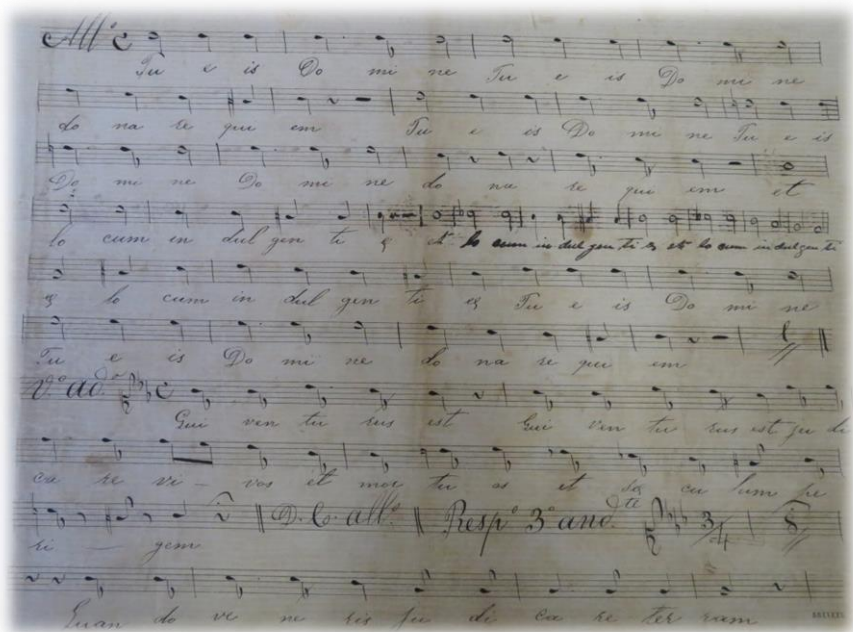 All.º
Tu e is Do mi ne Tu e is Do mi ne
do na re qui em Tu e is Do mi ne Tu e is
Do mi ne Do mi ne do na re qui em et
lo cum in dul gen ti æ et lo cum in dul gen ti æ et lo cum in dul gen ti
æ lo cum in dul gen ti æ Tu e is Do mi ne
Tu e is Do mi ne do na re qui em
V.º ad.º
Qui ven tu rus est Qui ven tu rus est ju di
ca re vi - vos et mor tu os et sæ cu lum pe
D. C. all.º Resp.º 3.º and.te 3/4 8
ri - gem
Quan do ve ne ris ju di ca re ter ram